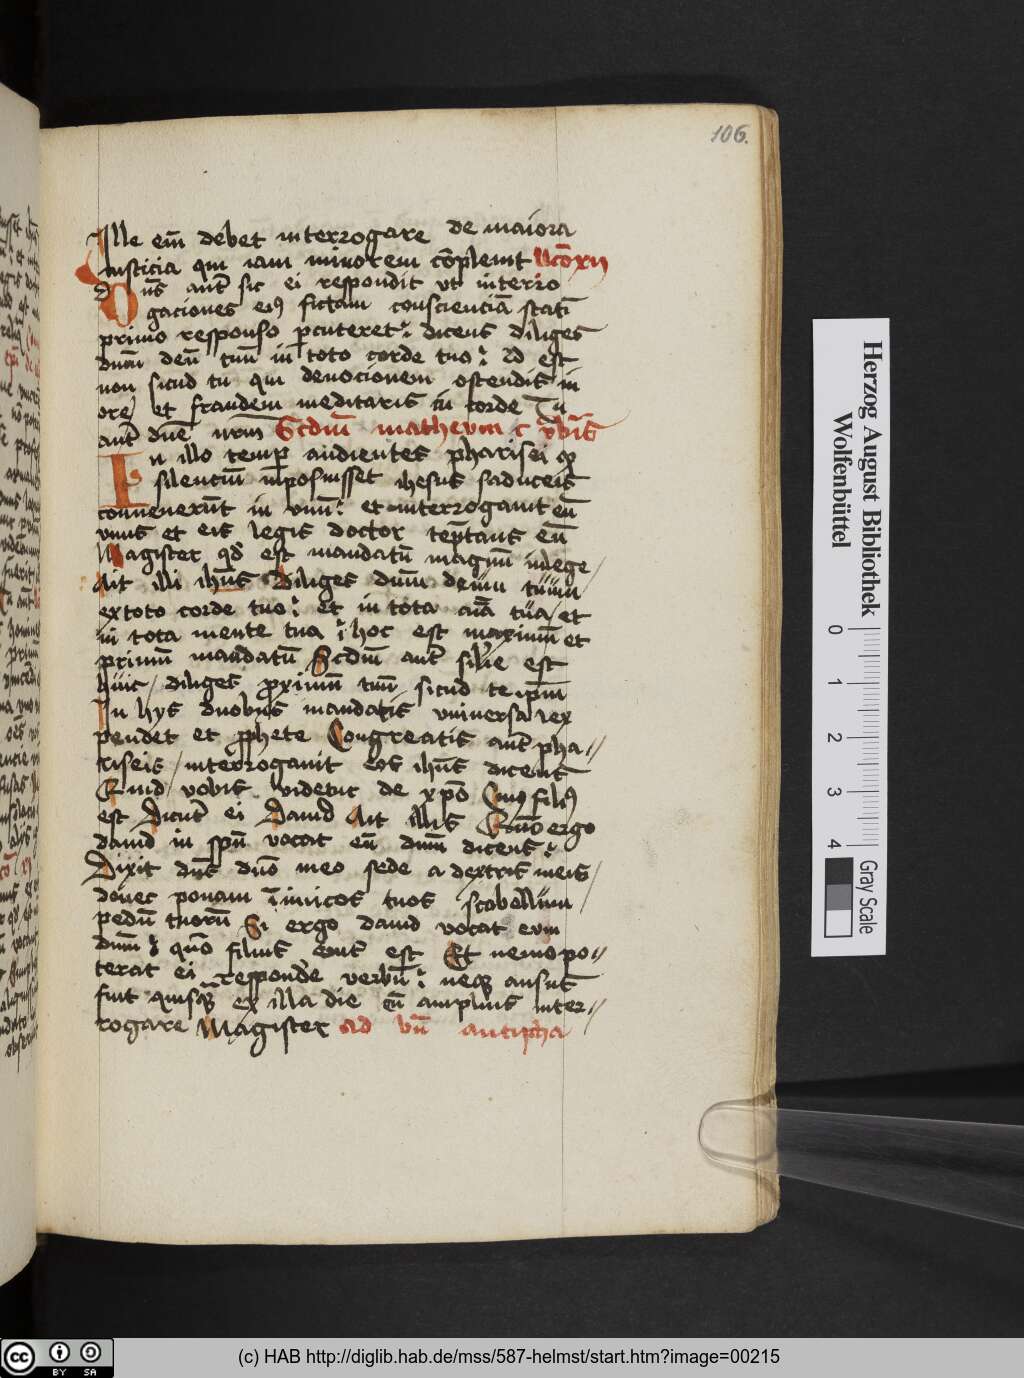 106.
Ille em̄ debet interrogare de maiora
iusticia qui iam minorem cōplenit lcō xij
Dn̄s aut̄ sic ei respondit vt interro
gaciones eiꝰ fictam conscienciā stati
primo responso ꝑcuteret: dicens diliges
dn̄m deū tuū in toto corde tuo: Id est
non sicud tu qui deuocionem ostendis in
ore et fraudem meditaris in corde Tu
aut̄ dn̄e nr̄m Scdm̄ matheum
In illo temꝑ audientes pharisei ꝙ
silenciū inposuisset ihesus saduceis
conuenerūt in vnū: et interrogauit eū
vnus et eis legis doctor temptans eū
Magister qd̄ est mandatū magnū in lege
Ait illi ihūs Diliges dn̄m deum tuum
ex toto corde tuo: et in tota aīa tua et
in tota mente tua: hoc est maximū et
primū mandatū Scdm̄ aut̄ sil̄e est
huic diliges ꝓximū tuū sicud te ip̄m
In hys duobus mandatis vniuersa lex
pendet et ꝓphete Congreatis aut̄ pha
riseis interrogauit eos ihūs dicens
Quid vobis videtur de xp̄o Cuiꝰ filiꝰ
est Dicūt ei Dauid Ait illis Quō ergo
dauid in spū vocat eū dn̄m dicens:
Dixit dn̄s dn̄o meo sede a dextris meis
donec ponam īimicos tuos scabellum
pedū tuorū Si ergo dauid vocat eum
dn̄m: quō filius eius est Et nemo po
terat ei respondē verbū: neqꝫ ausus
fuit quisqꝫ ex illa die eū amplius inter
rogare Magister ad bn̄ antipha
Herzog August Bibliothek
Wolfenbüttel
0 1 2 3 4
Gray Scale
cc BY SA
(c) HAB http://diglib.hab.de/mss/587-helmst/start.htm?image=00215